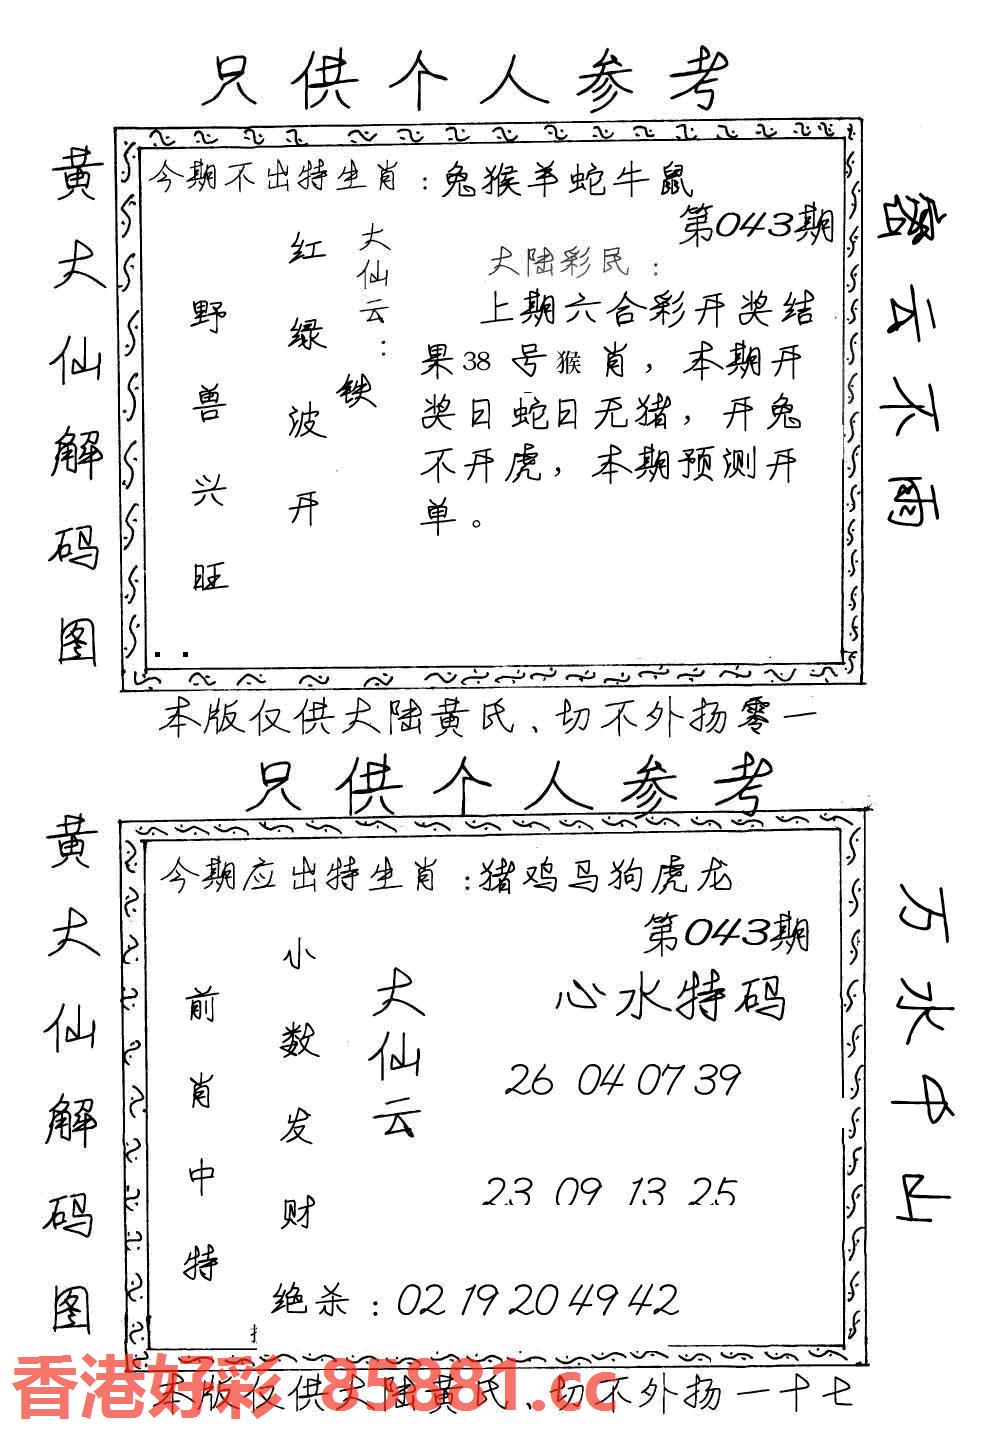 只供个人参考
黄大仙解码图
今期不出特生肖：兔猴羊蛇牛鼠
第043期
大仙云：
红绿波开
铁
野兽兴旺
大陆彩民：
上期六合彩开奖结
果38号猴肖，本期开
奖日蛇日无猪，开兔
不开虎，本期预测开
单。
密云不雨
本版仅供大陆黄氏、切不外扬零一
只供个人参考
黄大仙解码图
今期应出特生肖：猪鸡马狗虎龙
第043期
心水特码
大仙云
小数发财
前肖中特
26 04 07 39
23 09 13 25
绝杀：02 19 20 49 42
万水中山
香港好彩 85881.cc
本版仅供大陆黄氏、切不外扬一十七